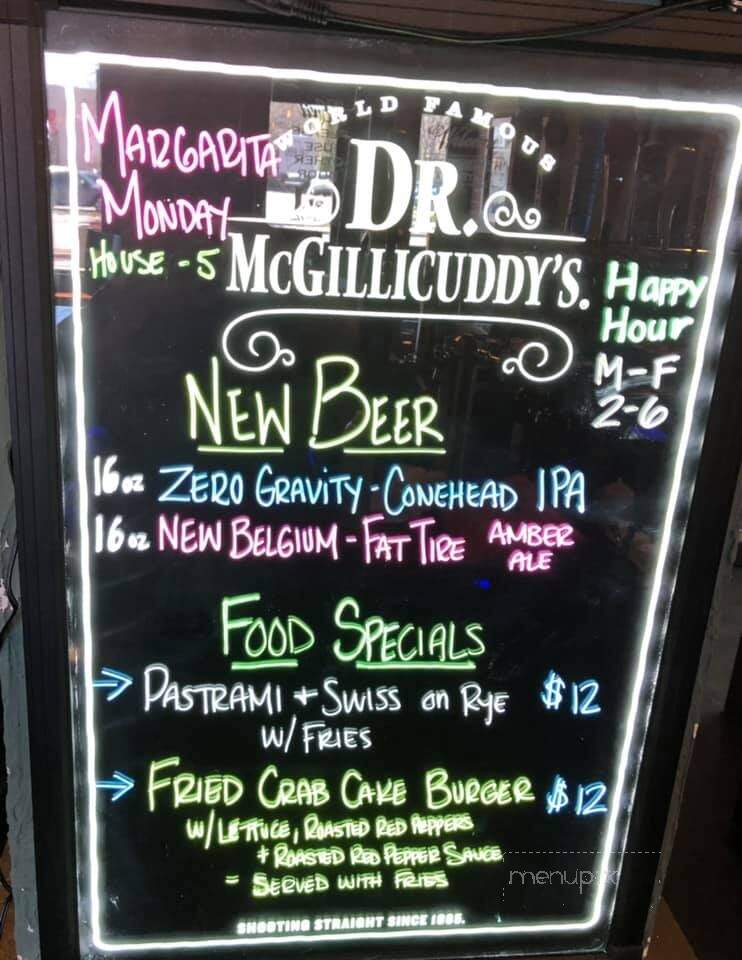 WORLD FAMOUS
MARGARITA
MONDAY
HOUSE - 5
DR.
McGILLICUDDY'S.
Happy
Hour
M-F
2-6
NEW BEER
16oz ZERO GRAVITY - CONEHEAD IPA
16oz NEW BELGIUM - FAT TIRE AMBER
ALE
FOOD SPECIALS
→ PASTRAMI + SWISS on RYE $12
W/ FRIES
→ FRIED CRAB CAKE BURGER $12
W/ LETTUCE, ROASTED RED PEPPERS
+ ROASTED RED PEPPER SAUCE
= SERVED WITH FRIES
SHOOTING STRAIGHT SINCE 1865.